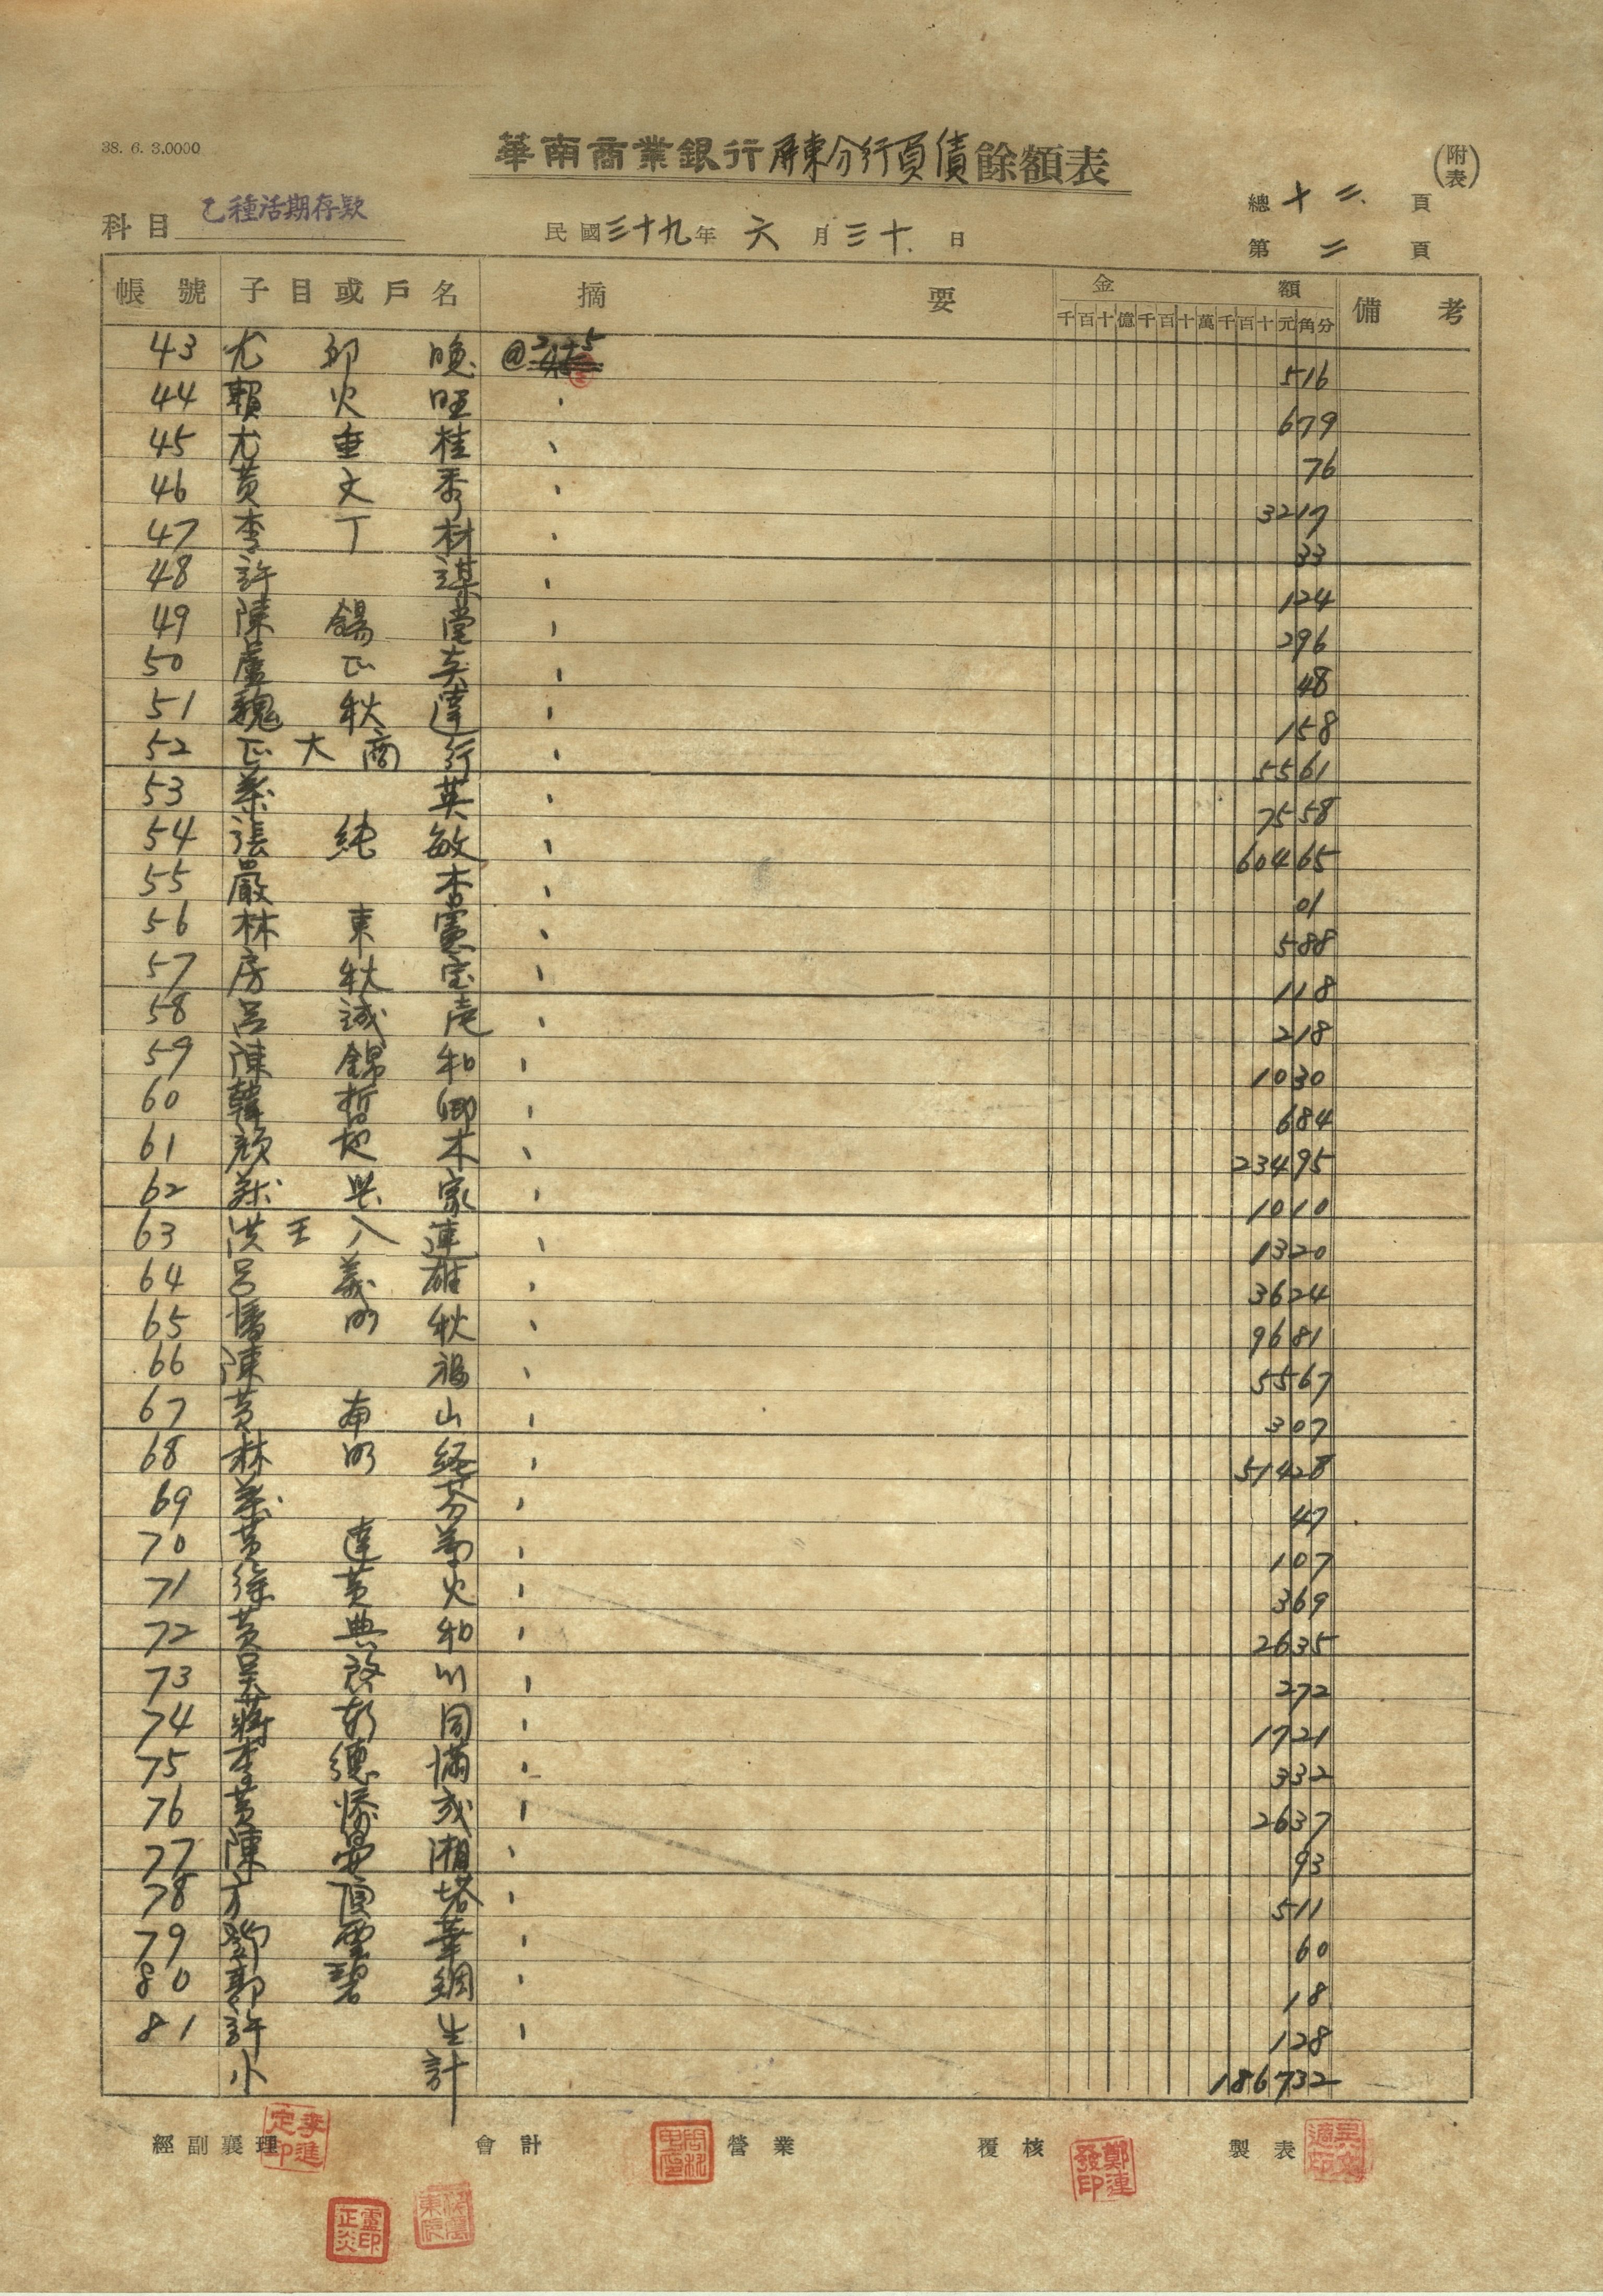 38. 6. 3.0000
華南商業銀行屏東分行負債餘額表
(附表)
科目 乙種活期存款
民國三十九年 六 月三十 日
總 十二 頁
第 二 頁
帳號 子目或戶名 摘要 金額 備考
千百十億千百十萬千百十元角分
43 尤 邱 晚 @ 516
44 賴 火 旺 679
45 尤 垂 桂 76
46 黃 文 秀 3217
47 李 丁 材 33
48 許 謀 124
49 陳 錫 堂 296
50 盧 正 48
51 魏 秋 達 158
52 正大商行 5561
53 葉 英 7558
54 張 純 敏 60465
55 嚴 杏 01
56 林 東 憲 588
57 房 秋 宝 118
58 呂 誠 218
59 陳 錦 和 1030
60 韓 哲 卿 684
61 顏 地 木 23495
62 興 家 1010
63 洪王八連 1320
64 呂 義 雄 3624
65 明 秋 9681
66 陳 福 5567
67 黃 南 山 307
68 林 明 經 51428
69 葉 芬 47
70 黃 達 107
71 徐 黃 火 369
72 黃 典 和 2635
73 吳 啟 川 272
74 蔣 同 1721
75 李 德 滿 332
76 黃 添 成 2637
77 陳 安 湘 93
78 方 頂 塔 511
79 鄧 雲 華 60
80 郭 碧 綢 18
81 許 生 128
小 計 186732
經副襄理 會計 營業 覆核 製表
李進定印
鄭連發印
盧正炎印